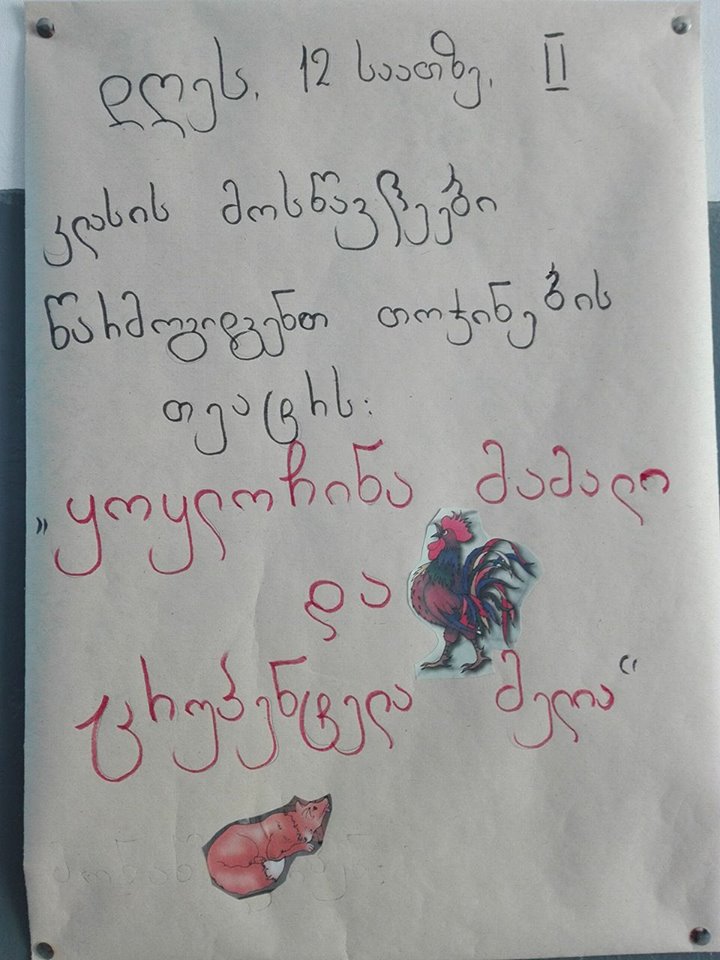 დღეს, 12 საათზე, II
კლასის მოსწავლეები
წარმოგიდგენთ თოჯინების
თეატრს:
„ყოყლოჩინა მამალი
და
ცრუპენტელა მელა“